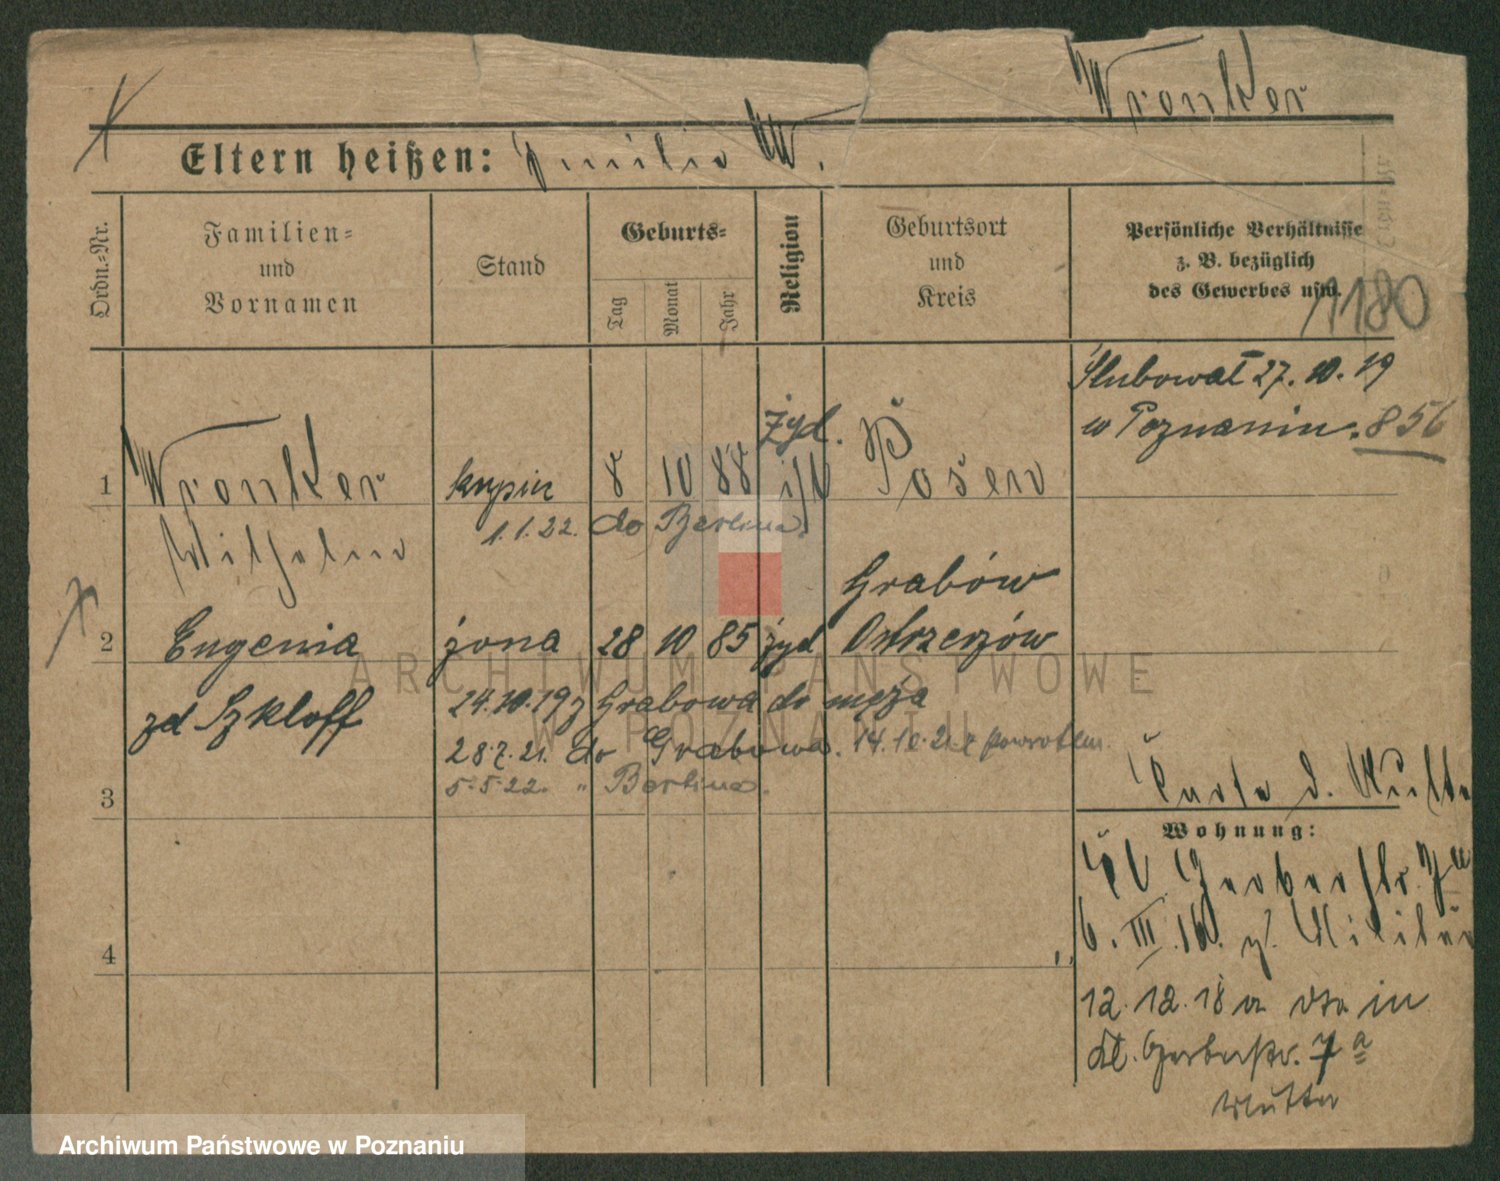 Wronker
Eltern heißen: Emilie W.
Ordn.-Nr.
Familien-
und
Vornamen
Stand
Geburts-
Tag
Monat
Jahr
Religion
Geburtsort
und
Kreis
Persönliche Verhältnisse
z. B. bezüglich
des Gewerbes usw.
1180
Ślubował 27.10.19
w Poznaniu. 856
żyd.
1 Wronker kupiec 8 10 88 isr Posen
Wilhelm 1.1.22. do Berlina.
Grabów
2 Eugenia żona 28 10 85 żyd Ostrzeszów
zd Szkloff
24.10.19 z Grabowa do męża
28.7.21. do Grabowa. 14.10.21 z powrotem.
5.5.22. " Berlina.
3
Karte d. Mutter
Wohnung:
Kl. Gerberstr. 7a
6.III.16. z. Militär
4
12.12.18 in
Kl. Gerberstr. 7a
Mutter
ARCHIWUM PAŃSTWOWE
W POZNANIU
Archiwum Państwowe w Poznaniu